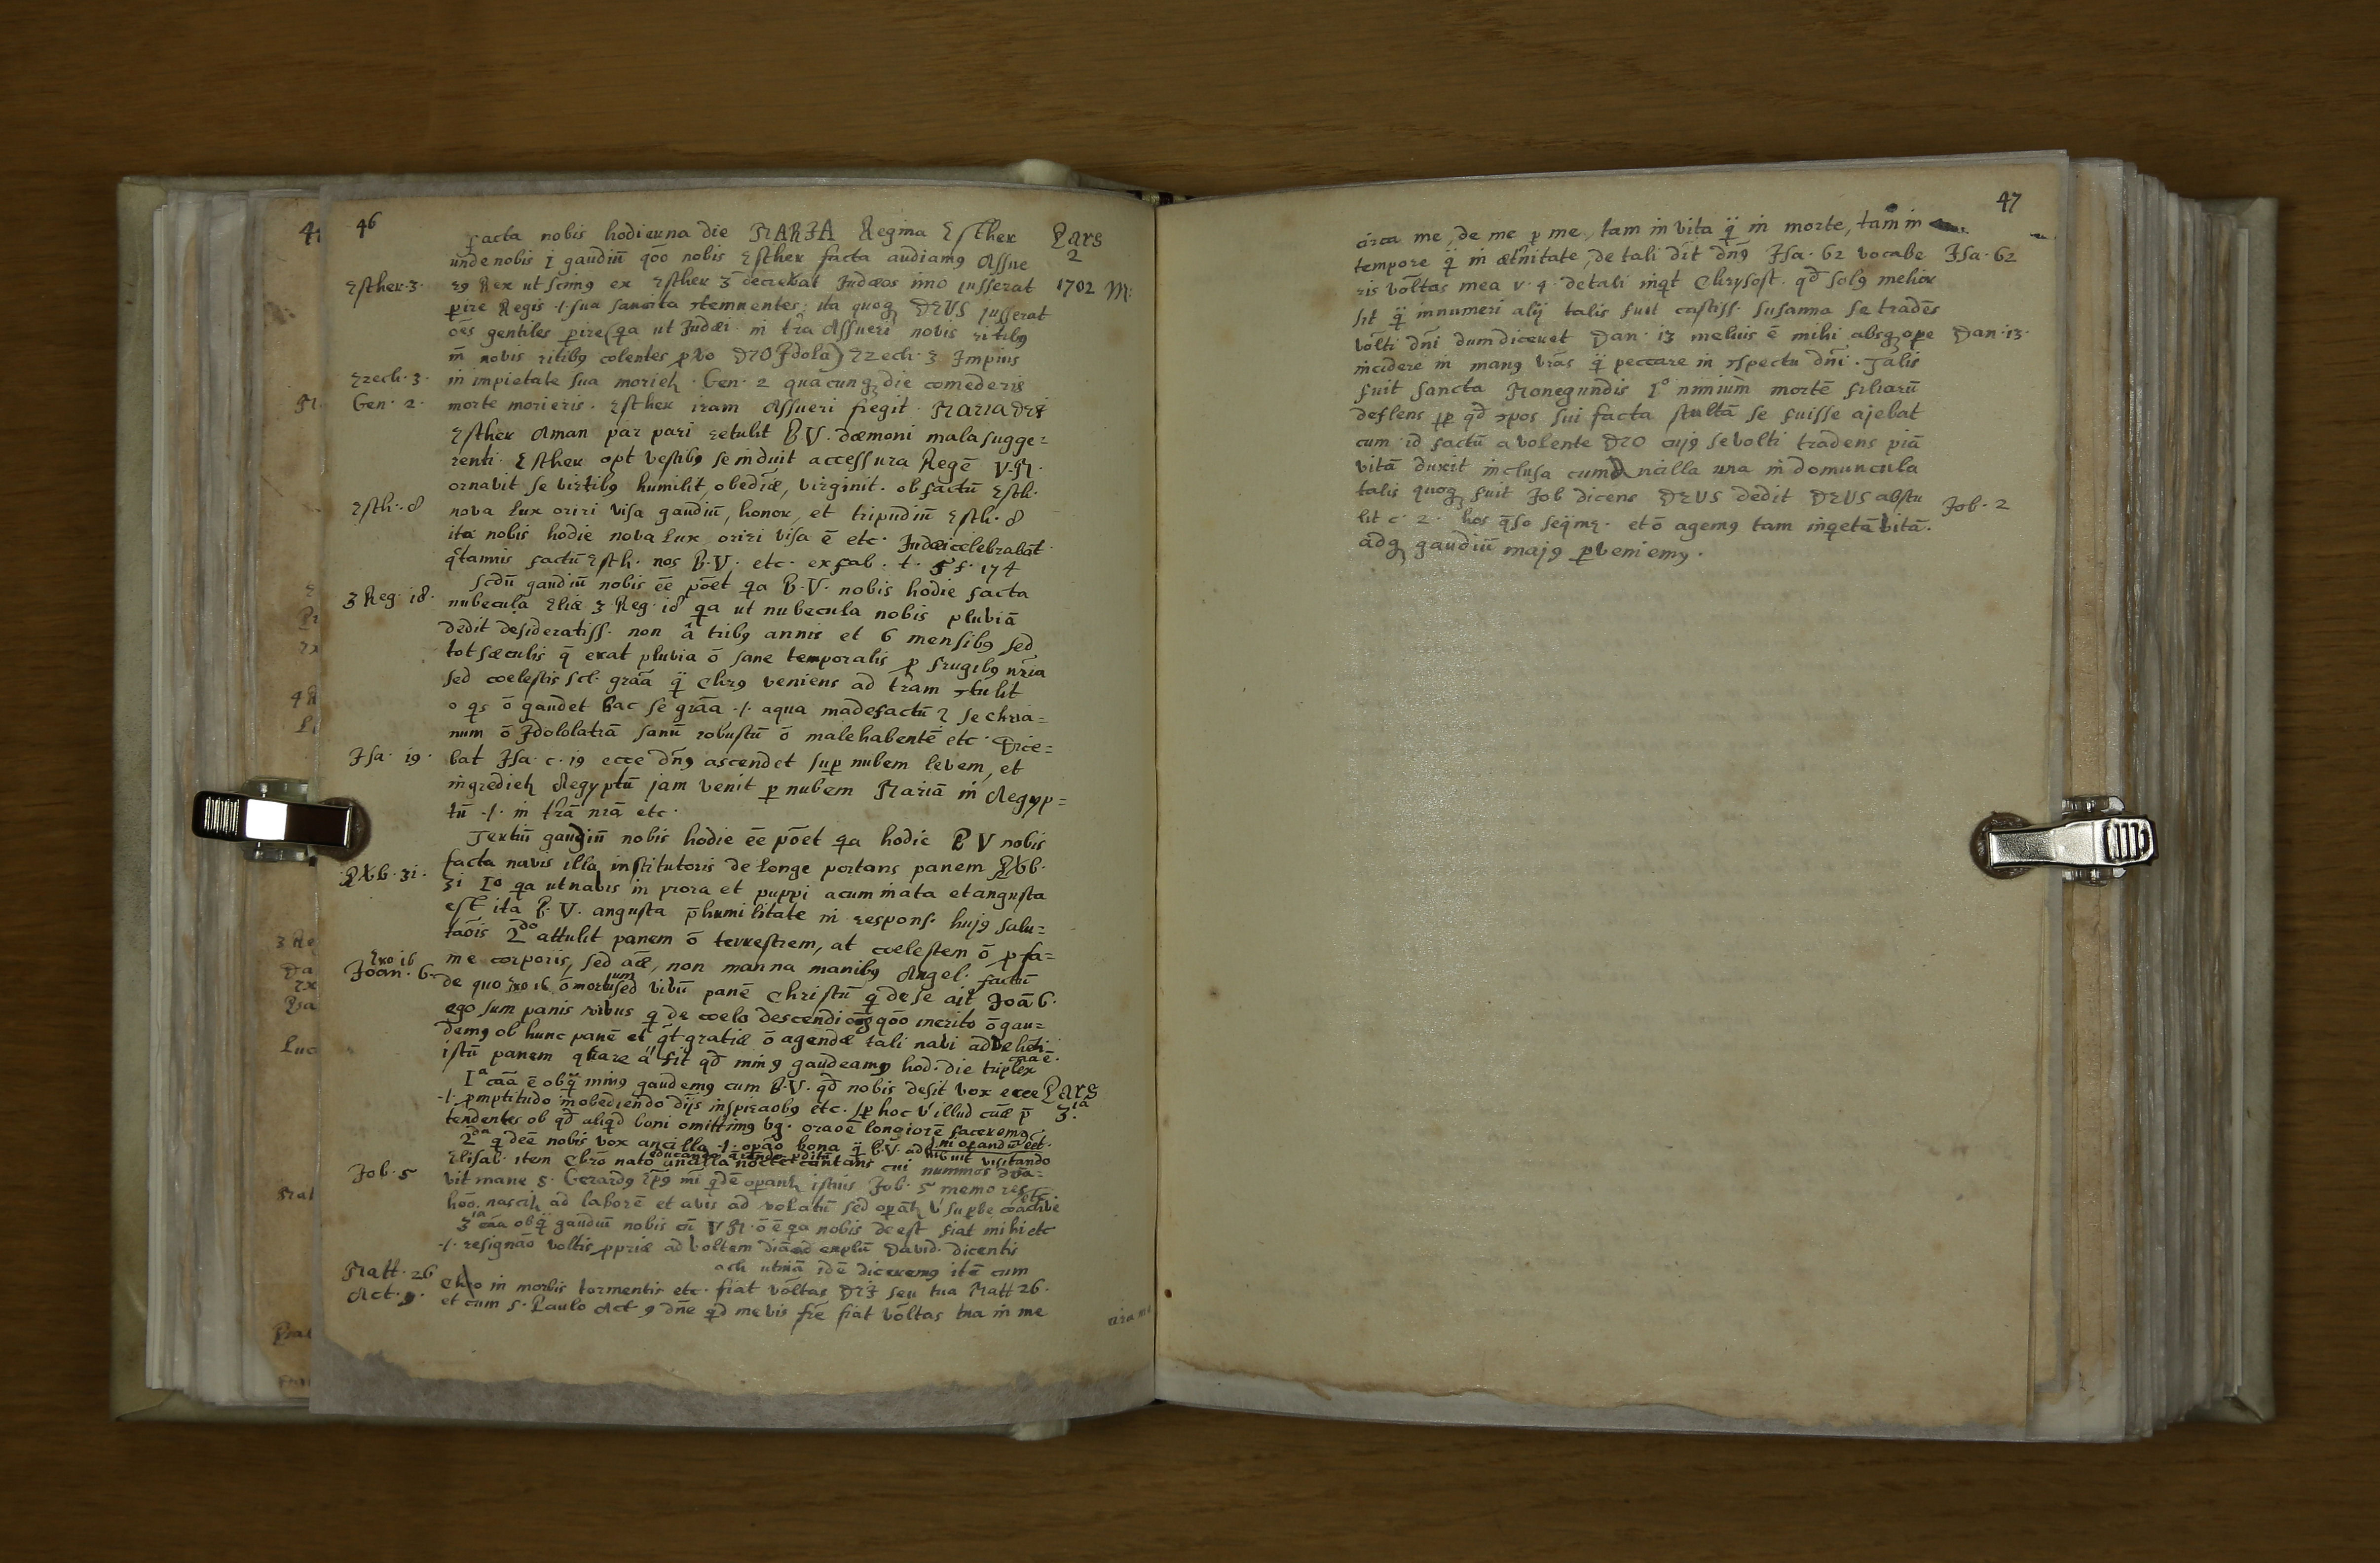 46
facta nobis hodierna die MARIA Regina Esther Pars
unde nobis 1 gaudiū qōo nobis Esther facta audiamꝰ Assue 2
Esther·3· rꝰ Rex ut scimꝰ ex Esther 3 decrebat Judæos imo jusserat 1702 M:
ꝑire Regis ·/· sua sancita ꝯtemnentes; ita quoqꝫ DEUS jusserat
oēs gentiles ꝑire (qa ut Judæi in tr̄a Assueri novis ritibꝰ
in novis ritibꝰ colentes pro DEO Idola) Ezech· 3 Impius
Ezech· 3· in impietate sua morietr̄ · Gen· 2 quacunqꝫ die comederis
Gen· 2· morte morieris · Esther iram Assueri fregit · Maria DEI
Esther Aman par pari retulit B V. dæmoni mala sugge=
renti · Esther opt vestibꝰ se induit accessura Regē V·M·
ornavit se virtibꝰ humilit, obediæ, virginit· ob factū Esth·
Esth··8 nova lux oriri visa gaudiū, honor, et tripudiū Esth· 8
ita nobis hodie nova lux oriri visa ē etc· Judæi celebrabāt·
qtannis factū Esth· nos B·V· etc· ex fab· t· 5 f· 174
Scdū gaudiū nobis eē pōet qa B·V· nobis hodie facta
3 Reg· 18· nubecula Eliæ 3 Reg· 18 qa ut nubecula nobis pluviā
dedit desideratiss· non â tribꝰ annis et 6 mensibꝰ sed
tot sæculis q̄ erat pluvia ō sane temporalis ꝓ frugibꝰ nr̄ia
sed coelestis scl· grāā q̄ Chrꝰ veniens ad tr̄am ꝯtulit
o qs ō gaudet hac se grāa ·/· aqua madefactū ꝛ se chria=
num ō Idololatrā sanū robustū ō male habentē etc· Dice=
Isa· 19· bat Isa· c· 19 ecce dn̄ꝰ ascendet suꝑ nubem levem, et
ingredietr̄ Aegyptū jam venit ꝑ nubem Mariā in Aegyp=
tū ·/· in tr̄ā nr̄ā etc·
Tertiū gaudiū nobis hodie eē pōet qa hodie B V nobis
facta navis illa institutoris de longe portans panem Prb·
Prb· 31· 31 1o qa ut navis in prora et puppi acuminata et angusta
est ita B·V· angusta p̄ humilitate in respons· hujꝰ salu=
taōis 2do attulit panem ō terrestrem, at coelestem ō ꝓ fa=
Exo 16 me corporis, sed aīæ, non manna manibꝰ Angel· factū
Joan· 6· de quo Exo 16 ō mortuum sed vivū panē Christū q de se ait Joā 6·
ego sum panis vivus q de coelo descendi qōo merito ō gau=
demꝰ ob hunc panē et q̄t gratiæ ō agendæ tali navi advehēti
istū panem quare â sit qd̄ minꝰ gaudeamꝰ hod· die triplex cāa ē·
1a cāa ē ob q̄ minꝰ gaudemꝰ cum B·V· qd̄ nobis desit vox ecce Pars
·/· ꝓmptitudo in obediendo diis inspiraobꝰ etc· sꝑ hoc V illud cūæ p̄ 3·ia
tendentes ob qd̄ aliqd boni omittimꝰ vg· oraoē longiorē faceremꝰ·
2da q deē nobis vox ancilla ·/· opāo bona q̄ B·V·
Elisab· item Chrō nato
Job· 5 vit mane S· Gerardꝰ
hoō· nascitr̄ ad laborē et avis ad volatū sed opātr̄ V suꝑbe
3·ia cāa ob q̄ gaudiū nobis cū V M· ō ē qa nobis deest fiat mihi etc
·/· resignāo voltis ꝓpriæ ad voltem diā ad explū David· dicentis
ach utinā idē diceremꝰ itē cum
Matt· 26 Chro in morbis tormentis etc· fiat vōltas DEI seu tua Matt 26·
Act· 9· et cum S· Paulo Act 9 dn̄e qd me vis fr̄e fiat vōltas tua in me
47
circa me, de me ꝑ me, tam in vita q̄ in morte, tam in
tempore q̄ in ætr̄nitate, de tali dīt dn̄ꝰ Isa· 62 vocabe Isa· 62
ris vōltas mea v· 4· de tali inqt Chrysost· qd̄ solꝰ melior
sit q̄ innumeri alij talis fuit castiss· Susanna se tradēs
vōlti dn̄i dum diceret Dan· 13 melius ē mihi absqꝫ ope Dan· 13·
incidere in manꝰ vr̄as q̄ peccare in ꝯspectu dn̄i· Talis
fuit sancta Monegundis 1o nimium mortē filiarū
deflens sꝑ qd̄ ꝯpos sui facta stultā se fuisse ajebat
cum id factū a volente DEO cujꝰ se volti tradens piā
vitā duxit inclusa cum ancilla una in domuncula
talis quoqꝫ fuit Job dicens DEUS dedit DEUS abstu Job· 2
lit c· 2· hos q̄so seq̄mꝛ· et ō agemꝰ tam inqetā vitā·
adqꝫ gaudiū majꝰ ꝑveniemꝰ·